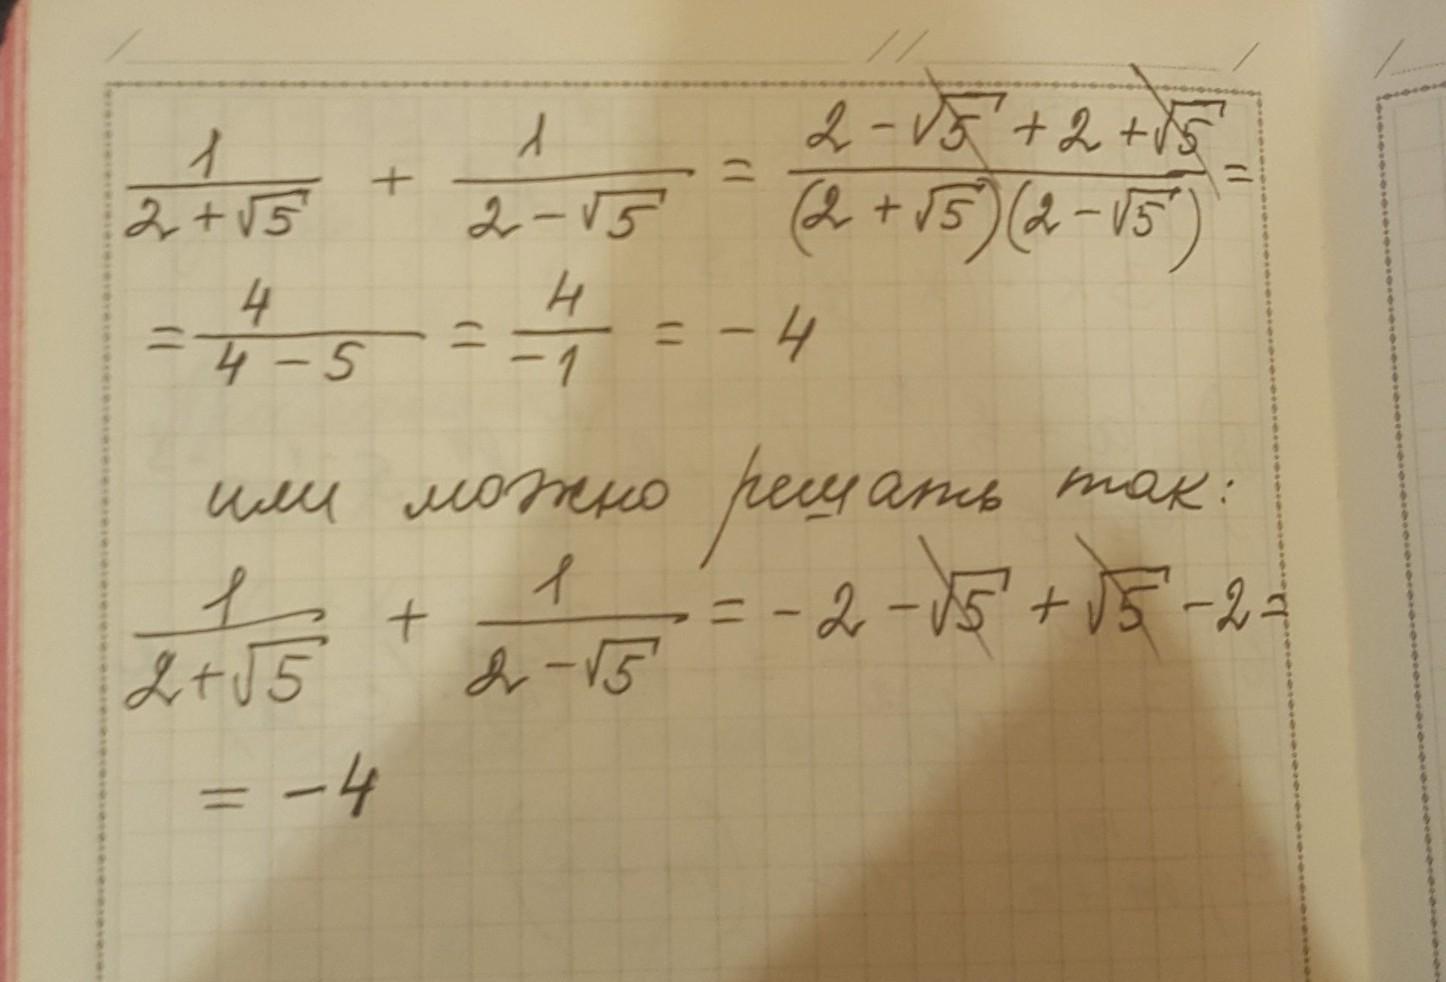 1/(2+√5) + 1/(2-√5) = (2-√5+2+√5)/((2+√5)(2-√5)) =
= 4/(4-5) = 4/(-1) = -4
или можно решать так:
1/(2+√5) + 1/(2-√5) = -2-√5+√5-2=
= -4